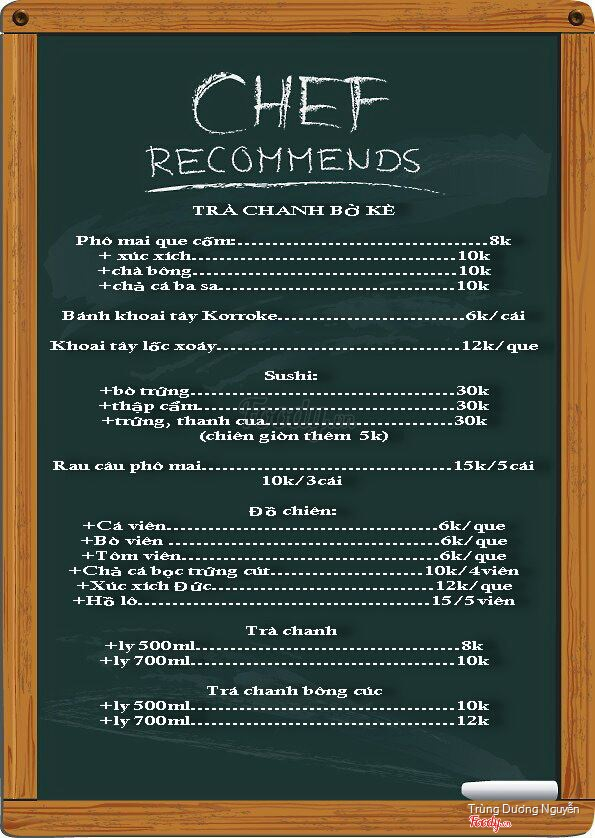 CHEF
RECOMMENDS
TRÀ CHANH BỜ KÈ
Phô mai que cốm:........................................8k
+ xúc xích..........................................10k
+chà bông..........................................10k
+chả cá ba sa......................................10k
Bánh khoai tây Korroke..............................6k/cái
Khoai tây lốc xoáy.......................................12k/que
Sushi:
+bò trứng..........................................30k
+thập cẩm..........................................30k
+trứng, thanh cua..............................30k
(chiên giòn thêm 5k)
Rau câu phô mai........................................15k/5cái
10k/3cái
Đồ chiên:
+Cá viên...........................................6k/que
+Bò viên ...........................................6k/que
+Tôm viên.........................................6k/que
+Chả cá bọc trứng cút........................10k/4viên
+Xúc xích Đức...................................12k/que
+Hồ lô...............................................15/5viên
Trà chanh
+ly 500ml..........................................8k
+ly 700ml..........................................10k
Trá chanh bông cúc
+ly 500ml..........................................10k
+ly 700ml..........................................12k
Trùng Dương Nguyễn
Foody.vn